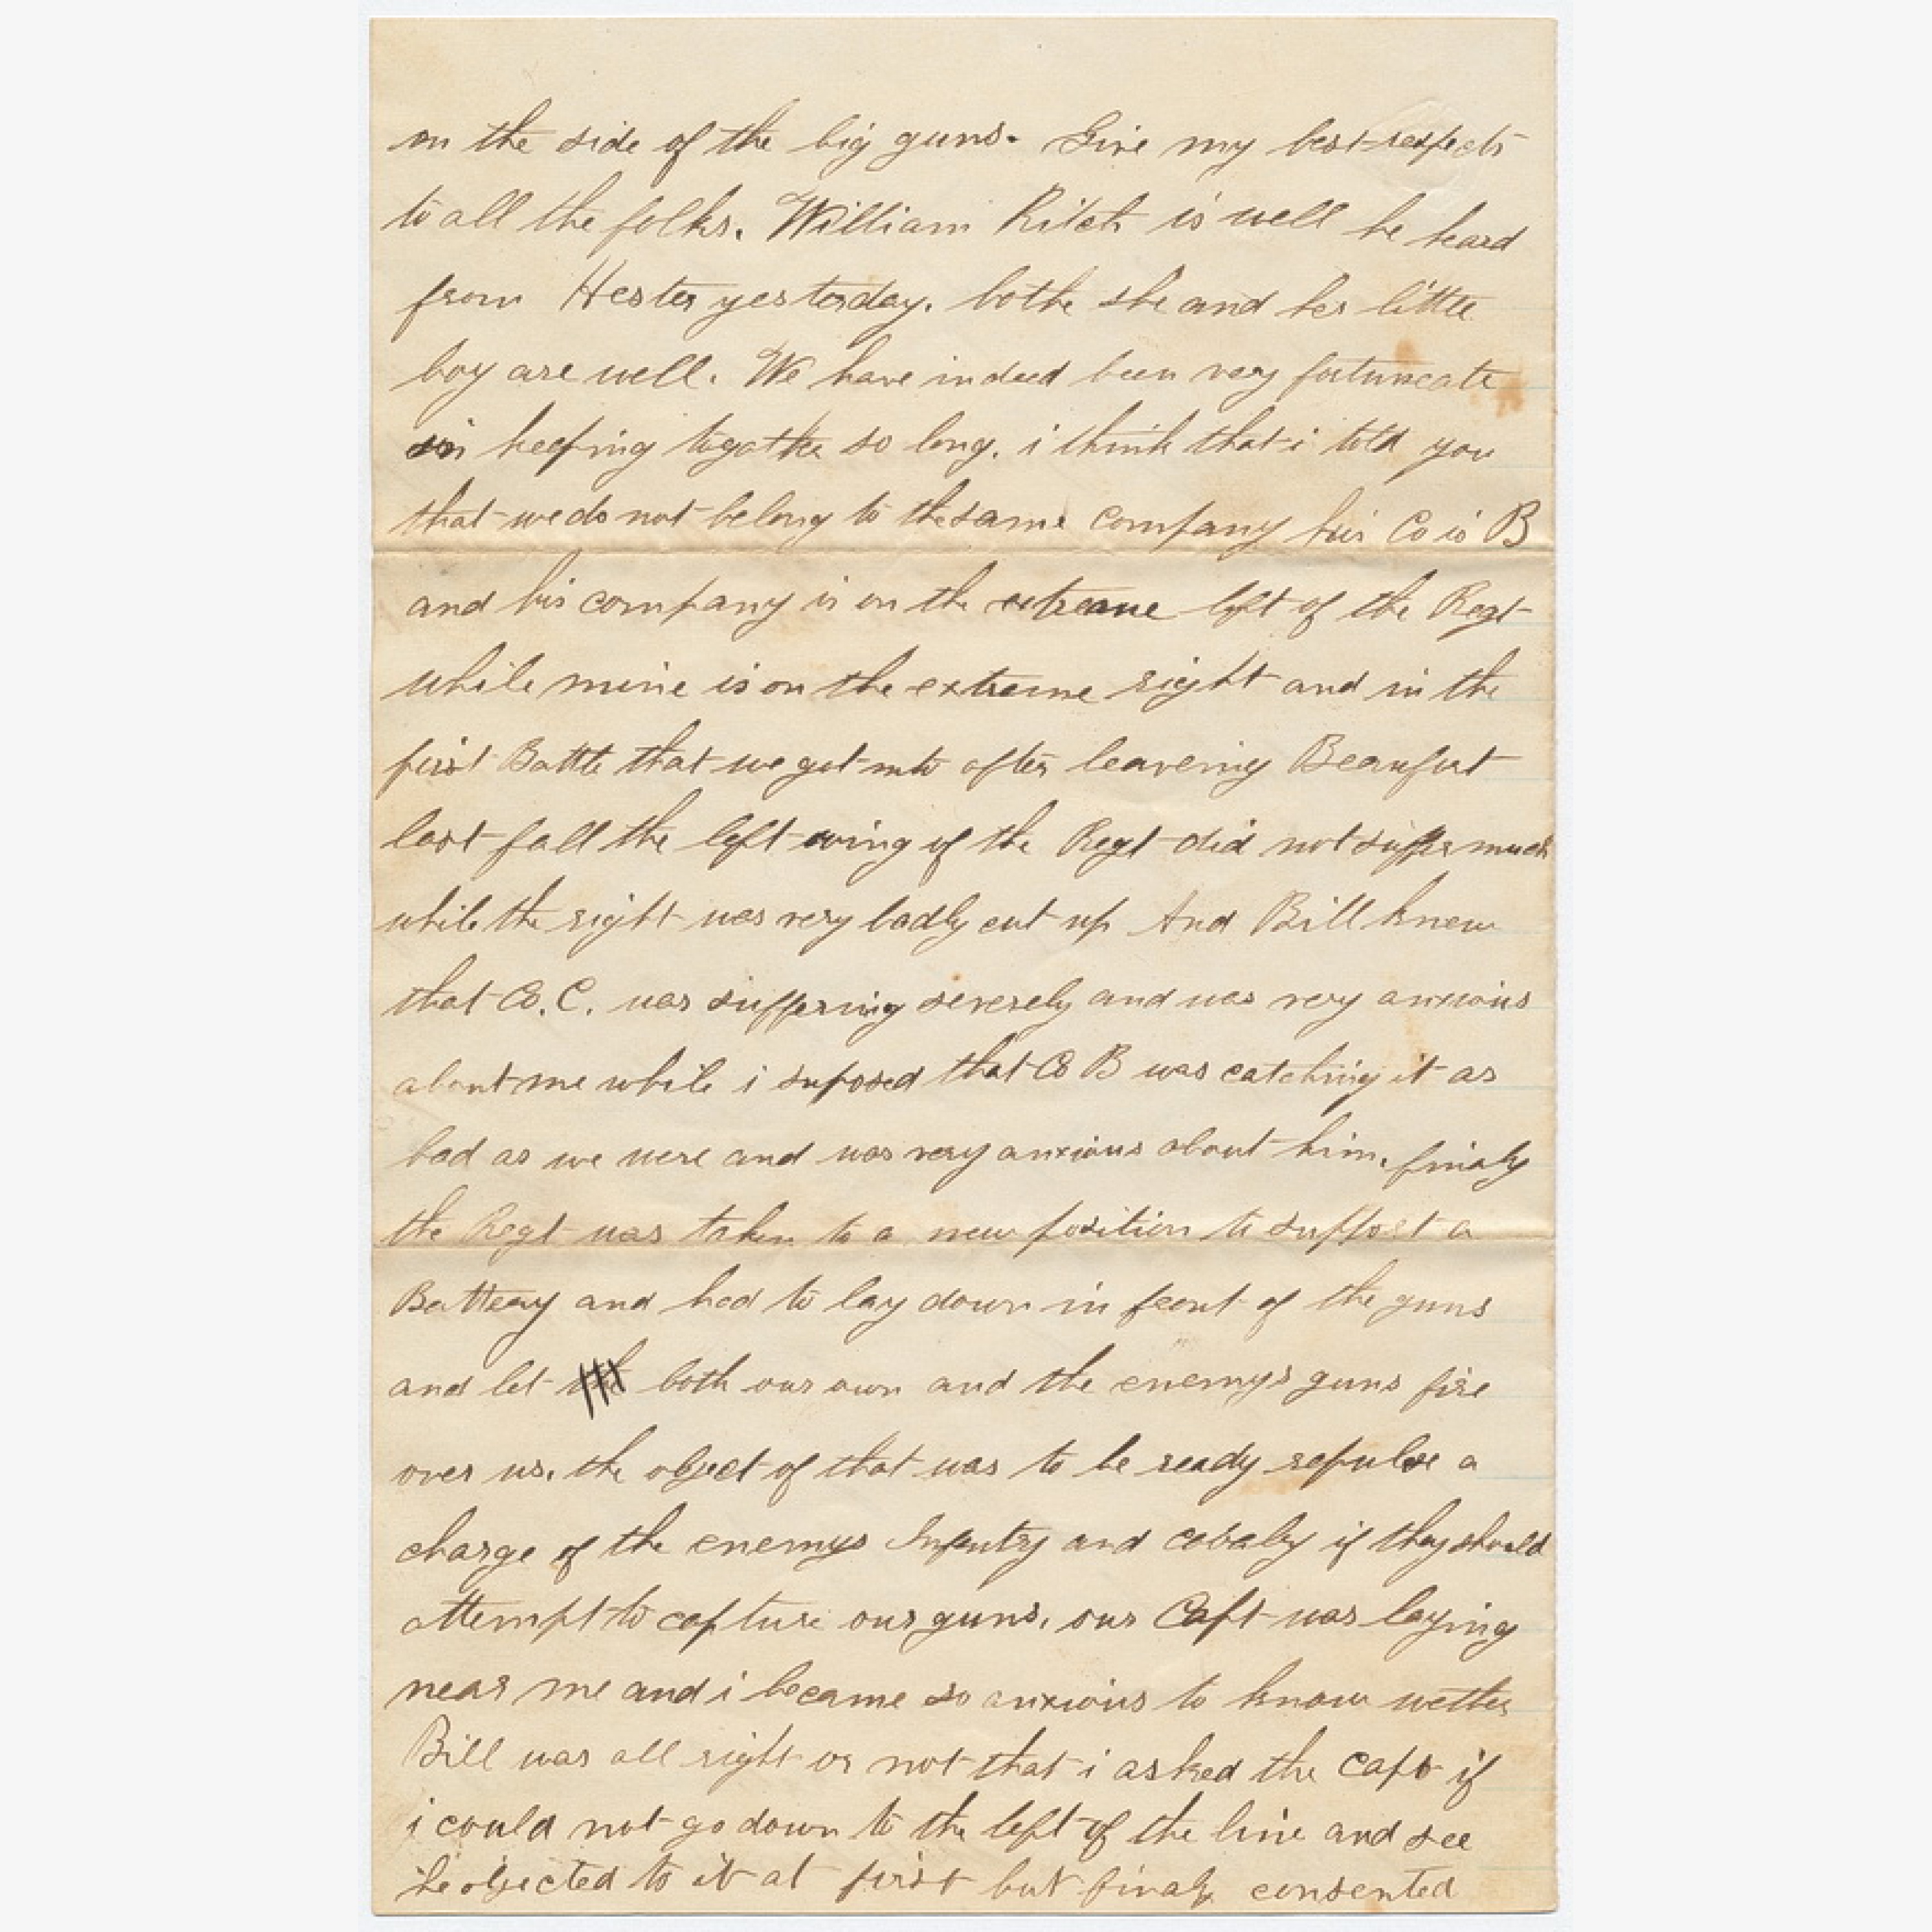 on the side of the big guns. Give my best respects
to all the folks. William Ritch is well he heard
from Hester yesterday. bothe she and her little
boy are well. We have indeed been very fortuneate
in keeping togathe so long. i think that i told you
that we do not belong to the same company his Co is B
and his company is on the extreame left of the Regt
while mine is on the extreme right and in the
first Battle that we got into after leaveing Beaufort
last fall the left wing of the Regt did not suffer much
while the right was very badly cut up And Bill knew
that Co. C. was suffering severely and was very anxious
about me while i suposed that Co B was catching it as
bad as we were and was very anxious about him. finaly
the Regt was taken to a new position to support a
Battery and had to lay down in front of the guns
and let both our own and the enemys guns fire
over us. the object of that was to be ready repulse a
charge of the enemys Infentry and cavalry if they should
attempt to capture our guns. our Capt was laying
near me and i became so anxious to know wether
Bill was all right or not that i asked the Capt if
i could not go down to the left of the line and see
he objected to it at first but finaly consented